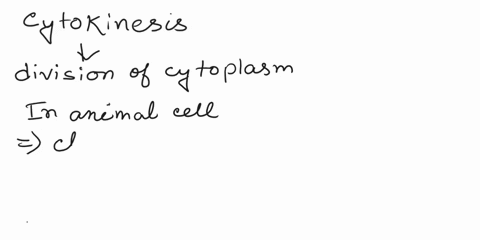 Cytokinesis
↓
division of cytoplasm
In animal cell
⇒ cl